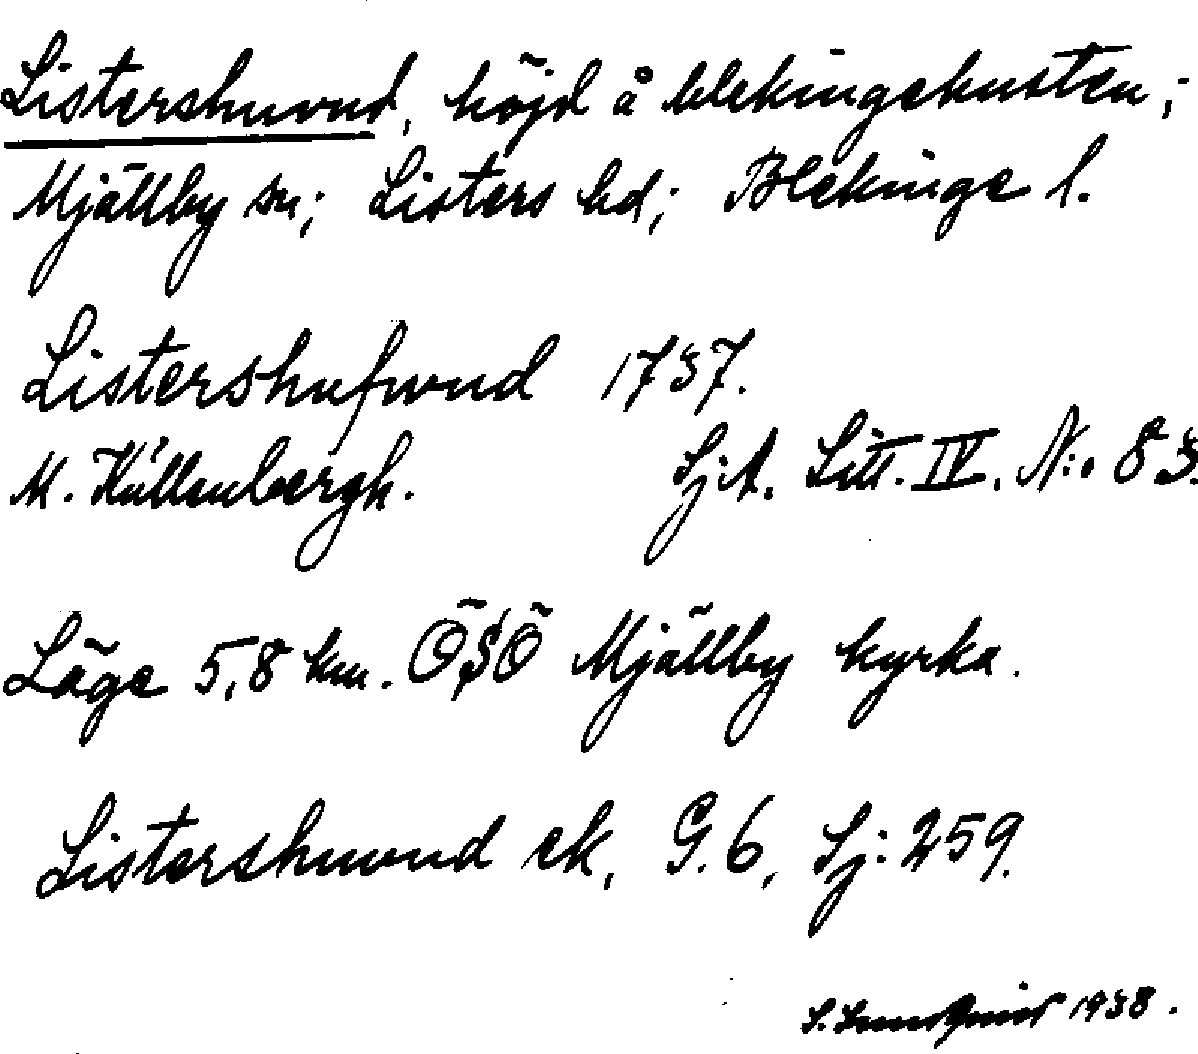 Listershuvud, höjd å blekingekusten;
Mjällby sn; Listers hd; Blekinge l.
Listershufvud 1737.
M. Küllenbergh. Sj:A. Litt. IV. N:o 83.
Läge 5,8 km. ÖSÖ Mjällby kyrka.
Listershuvud ek, G.6, Sj:259.
S. Lundquist 1938.